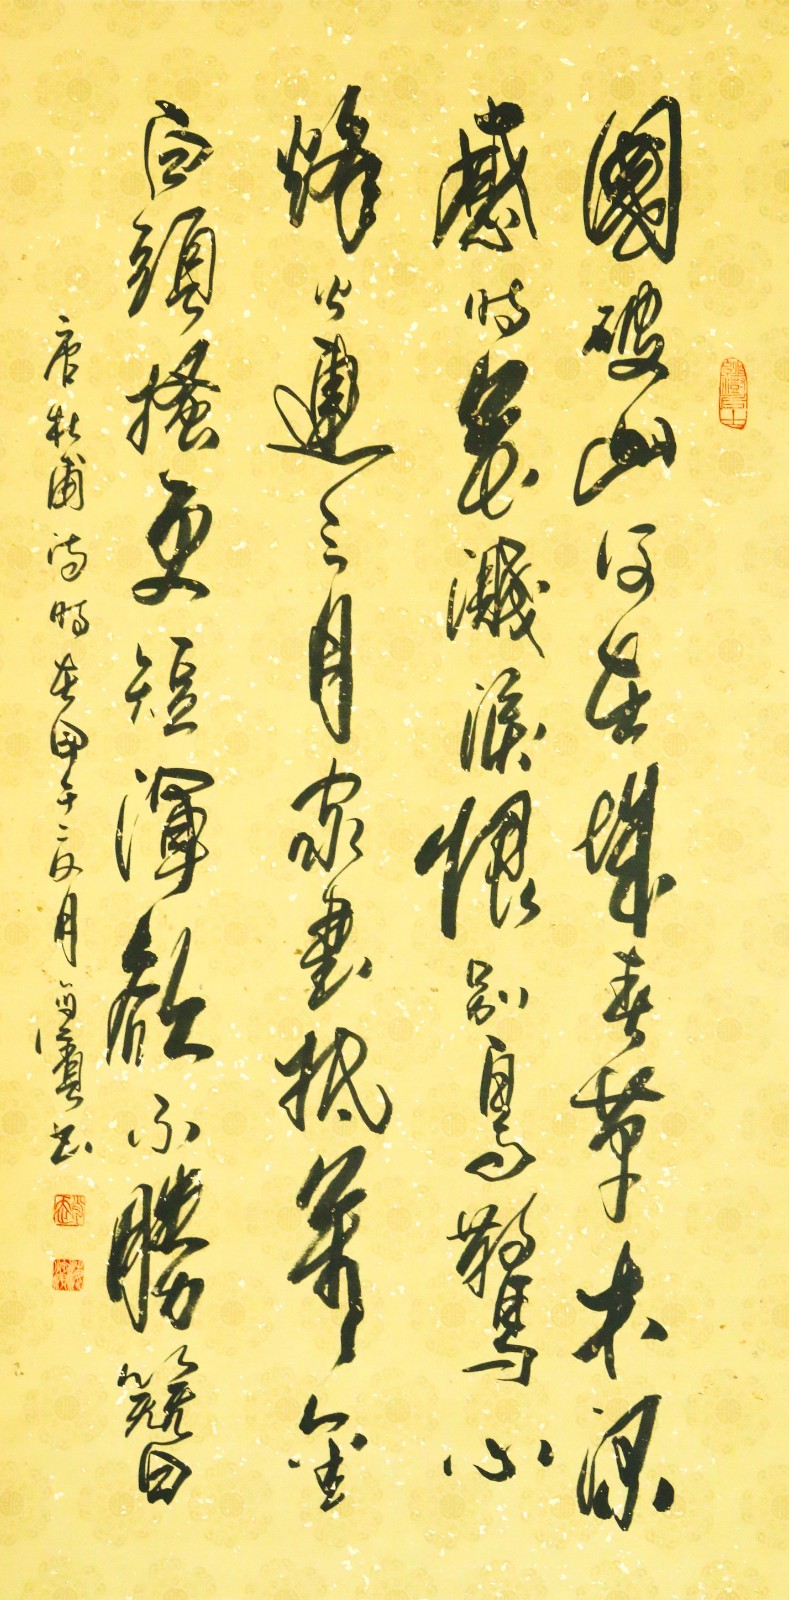 國破山河在城春草木深
感時花濺淚恨別鳥驚心
烽火連三月家書抵萬金
白頭搔更短渾欲不勝簪
唐杜甫詩時在甲午二月
書